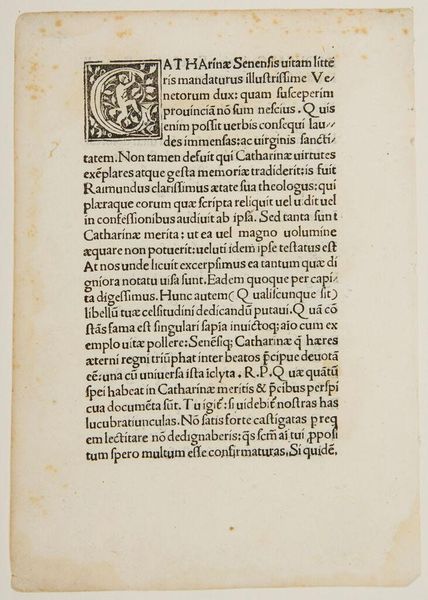 CATHArinæ Senensis uitam litte
ris mandaturus illustrissime Ve⸗
netorum dux: quam susceperim
prouinciã nõ sum nescius. Quis
enim possit uerbis consequi lau⸗
des immensas: ac uirginis sancti⸗
tatem. Non tamen defuit qui Catharinæ uirtutes
exẽplares atque gesta memoriæ tradiderit: is fuit
Raimundus clarissimus ætate sua theologus: qui
plæraque eorum quæ scripta reliquit uel uidit uel
in confessionibus audiuit ab ipsa. Sed tanta sunt
Catharinæ merita: ut ea uel magno uolumine
æquare non potuerit: ueluti idem ipse testatus est
At nos unde licuit excerpsimus ea tantum quæ di
gniora notatu uisa sunt. Eadem quoque per capi⸗
ta digessimus. Hunc autem (Qualiscunque sit)
libellũ tuæ celsitudini dedicandũ putaui. Quã cõ
stãs fama est singulari sapĩa inuictoq; aĩo cum ex
emplo uitæ pollere: Senẽsiq; Catharinæ q̃ hæres
æterni regni triũphat inter beatos p̃cipue deuotã
eẽ: una cũ uniuersa ista ĩclyta. R.P. Quæ quãtũ
spei habeat in Catharinæ meritis & p̃cibus perspi
cua documẽta sũt. Tu igiť: si uidebiť nostras has
lucubratiunculas. Nõ satis forte castigatas p req
em lectitare nõ dedignaberis: q̃s scm̃ ai tui ꝓposi
tum spero multum esse confirmaturas, Si quidẽ,